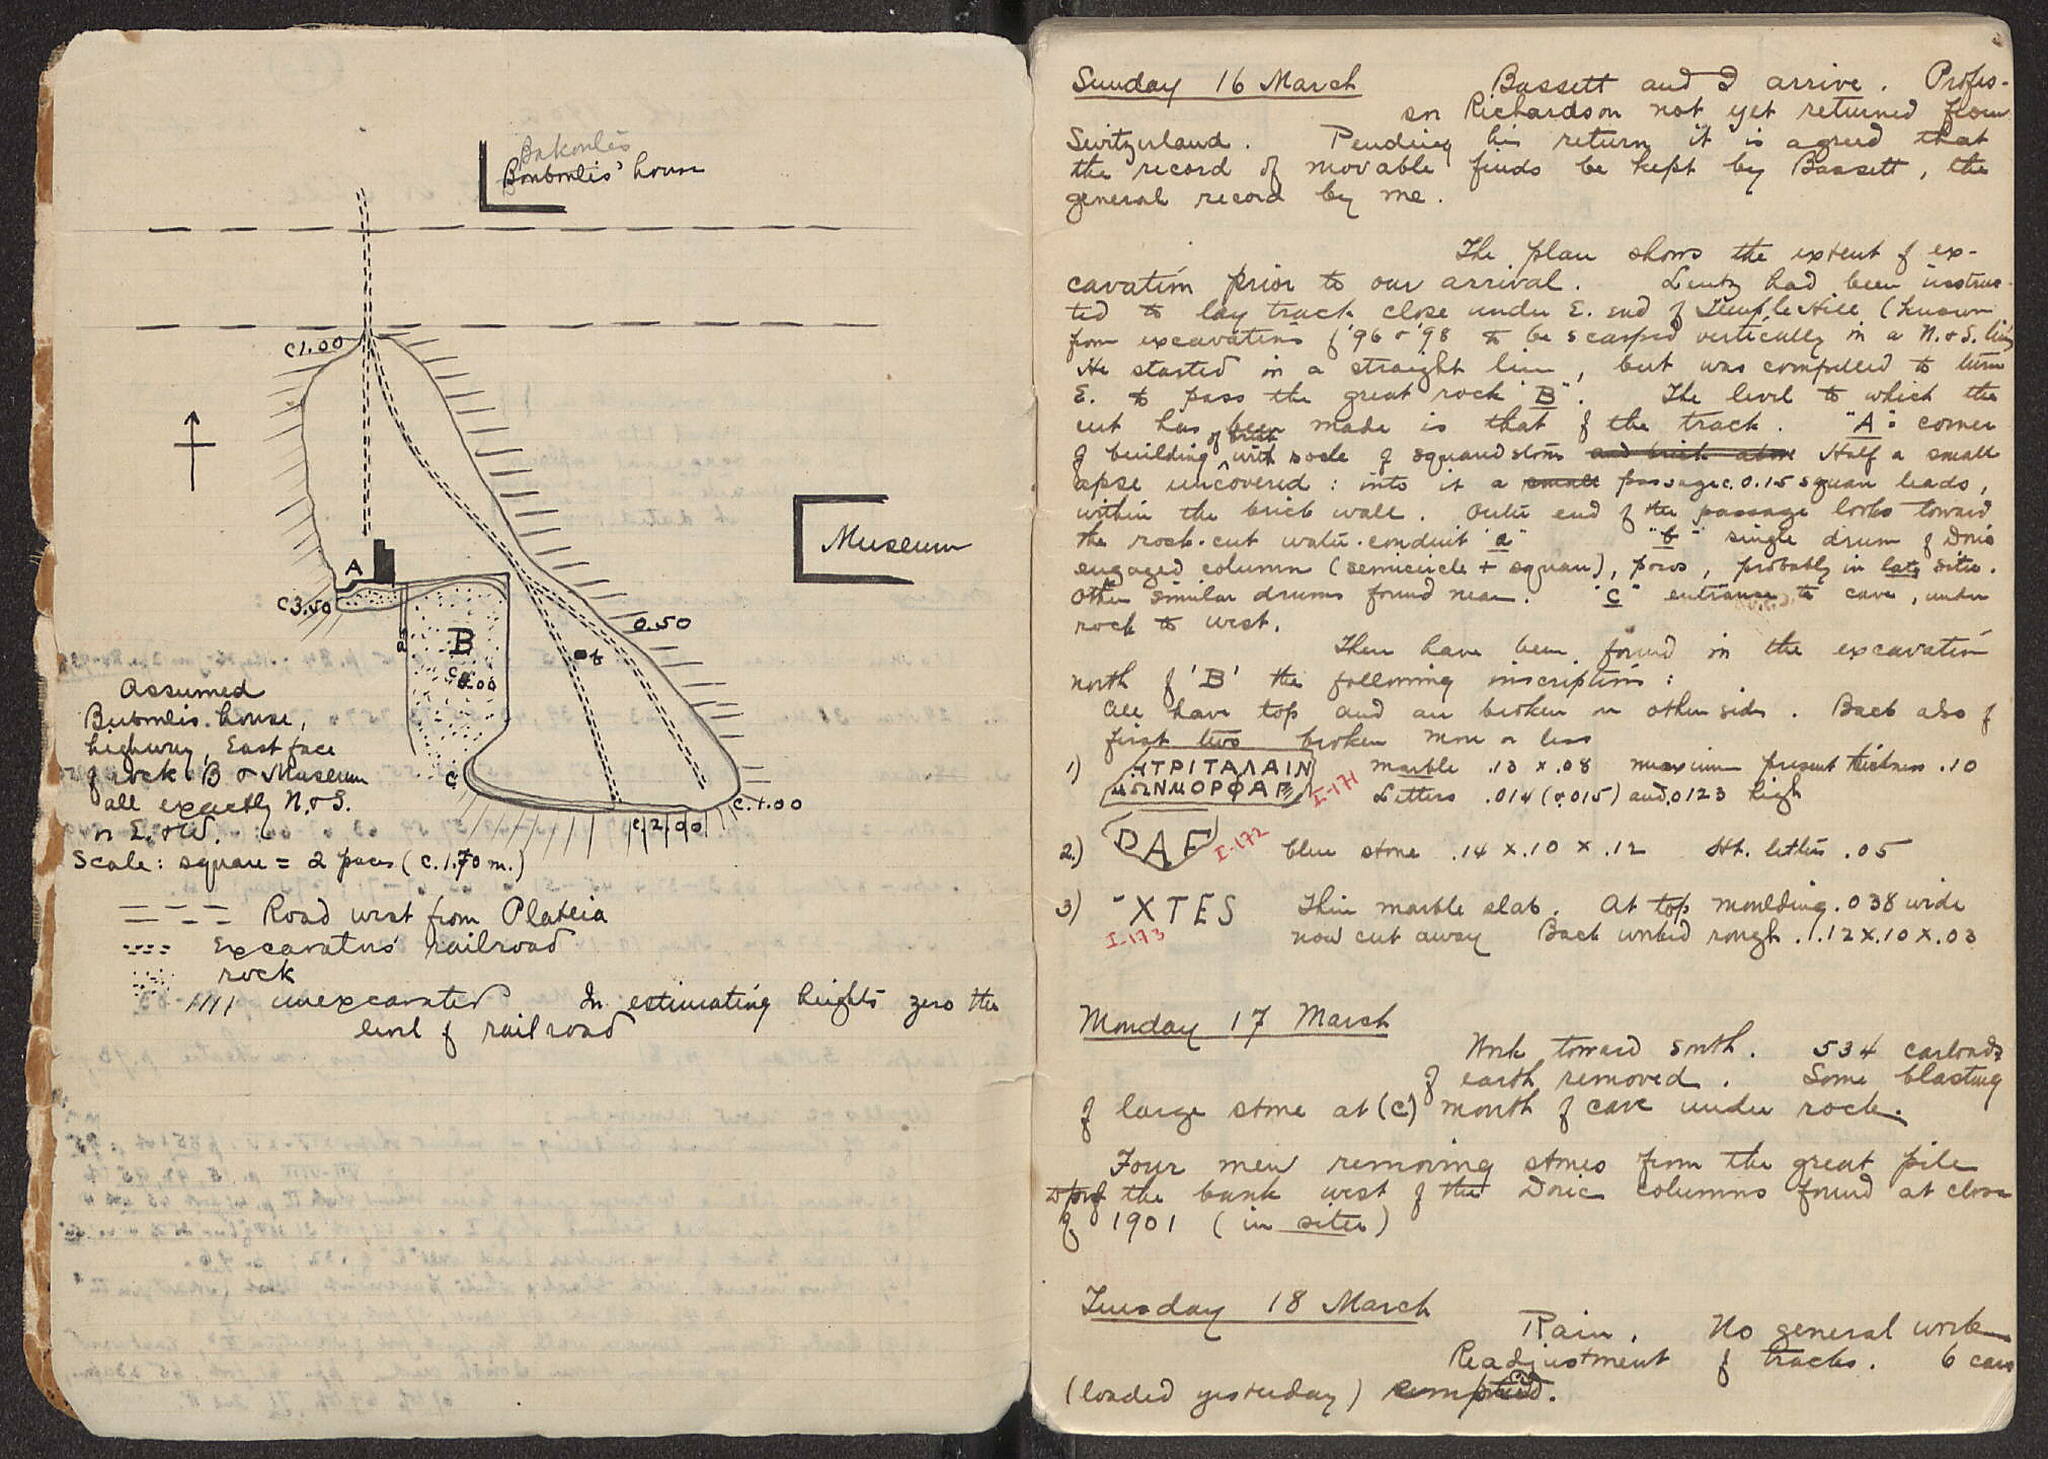 Bakoulis
Bouboulis' house
C 1.00
Museum
A
C 3.50
a
B
0.50
b
Assumed
Buboulis house,
highway, East face
of rock B & Museum
all exactly N. & S.
or E. & W.
C
C. 1.00
C. 2.00
Scale: square = 2 paces (c. 1.70 m.)
Road west from Plateia
Excavators' railroad
rock
unexcavated In estimating heights zero the
level of railroad
Sunday 16 March Bassett and I arrive. Profes-
sor Richardson not yet returned from
Switzerland. Pending his return it is agreed that
the record of movable finds be kept by Bassett, the
general record by me.
The plan shows the extent of ex-
cavation prior to our arrival. Lentz had been instruc-
ted to lay track close under E. end of Temple Hill (known
from excavations of '96 & '98 to be scarped vertically in a N. & S. line
He started in a straight line, but was compelled to turn
E. to pass the great rock "B". The level to which the
cut has been made is that of the track. "A": corner
of building of brick with socle of squared stones and brick above Half a small
apse uncovered: into it a small passage c. 0.15 square leads,
within the brick wall. Outer end of the passage looks toward
the rock-cut water-conduit "a" "b" single drum of Doric
engaged column (semicircle + square), poros, probably in late situ.
Other similar drums found near. "C" entrance to cave, under
rock to west.
There have been found in the excavation
north of 'B' the following inscriptions:
All have top and are broken on other sides. Back also of
first two broken more or less
1) ΗΤΡΙΤΑΛΑΙΝ marble .13 x .08 maximum present thickness .10
ΩΝΜΟΡΦΑΓ I-171 Letters .014 (&.015) and .0123 high
2.) DAF I-172 blue stone .14 x .10 x .12 Ht. letters .05
3) XTES Thin marble slab. At top moulding .038 wide
I-173 now cut away Back worked rough. .12 x .10 x .03
Monday 17 March
Work toward south. 534 carloads
of earth removed. Some blasting
of large stone at (C) mouth of cave under rock.
Four men removing stones from the great pile
top of the bank west of the Doric columns found at close
of 1901 (in situ)
Tuesday 18 March
Rain. No general work
Readjustment of tracks. 6 cars
(loaded yesterday) emptied.